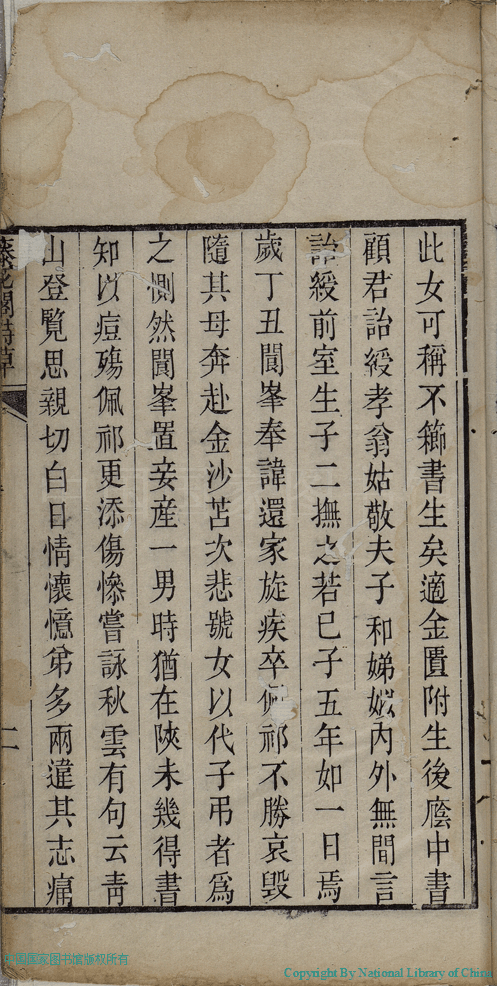 此女可稱不籜書生矣適金匱附生後廕中書
顧君詒綬孝翁姑敬夫子和娣姒內外無間言
詒綬前室生子二撫之若已子五年如一日焉
歲丁丑閬峯奉諱還家旋疾卒佩祁不勝哀毀
隨其母奔赴金沙苫次悲號女以代子弔者為
之惻然閬峯置妾產一男時猶在陝未幾得書
知以痘殤佩祁更添傷慘嘗詠秋雲有句云靑
山登覽思親切白日情懷憶弟多兩違其志痛
藤花閣詩草
二
中国国家图书馆版权所有
Copyright By National Library of China